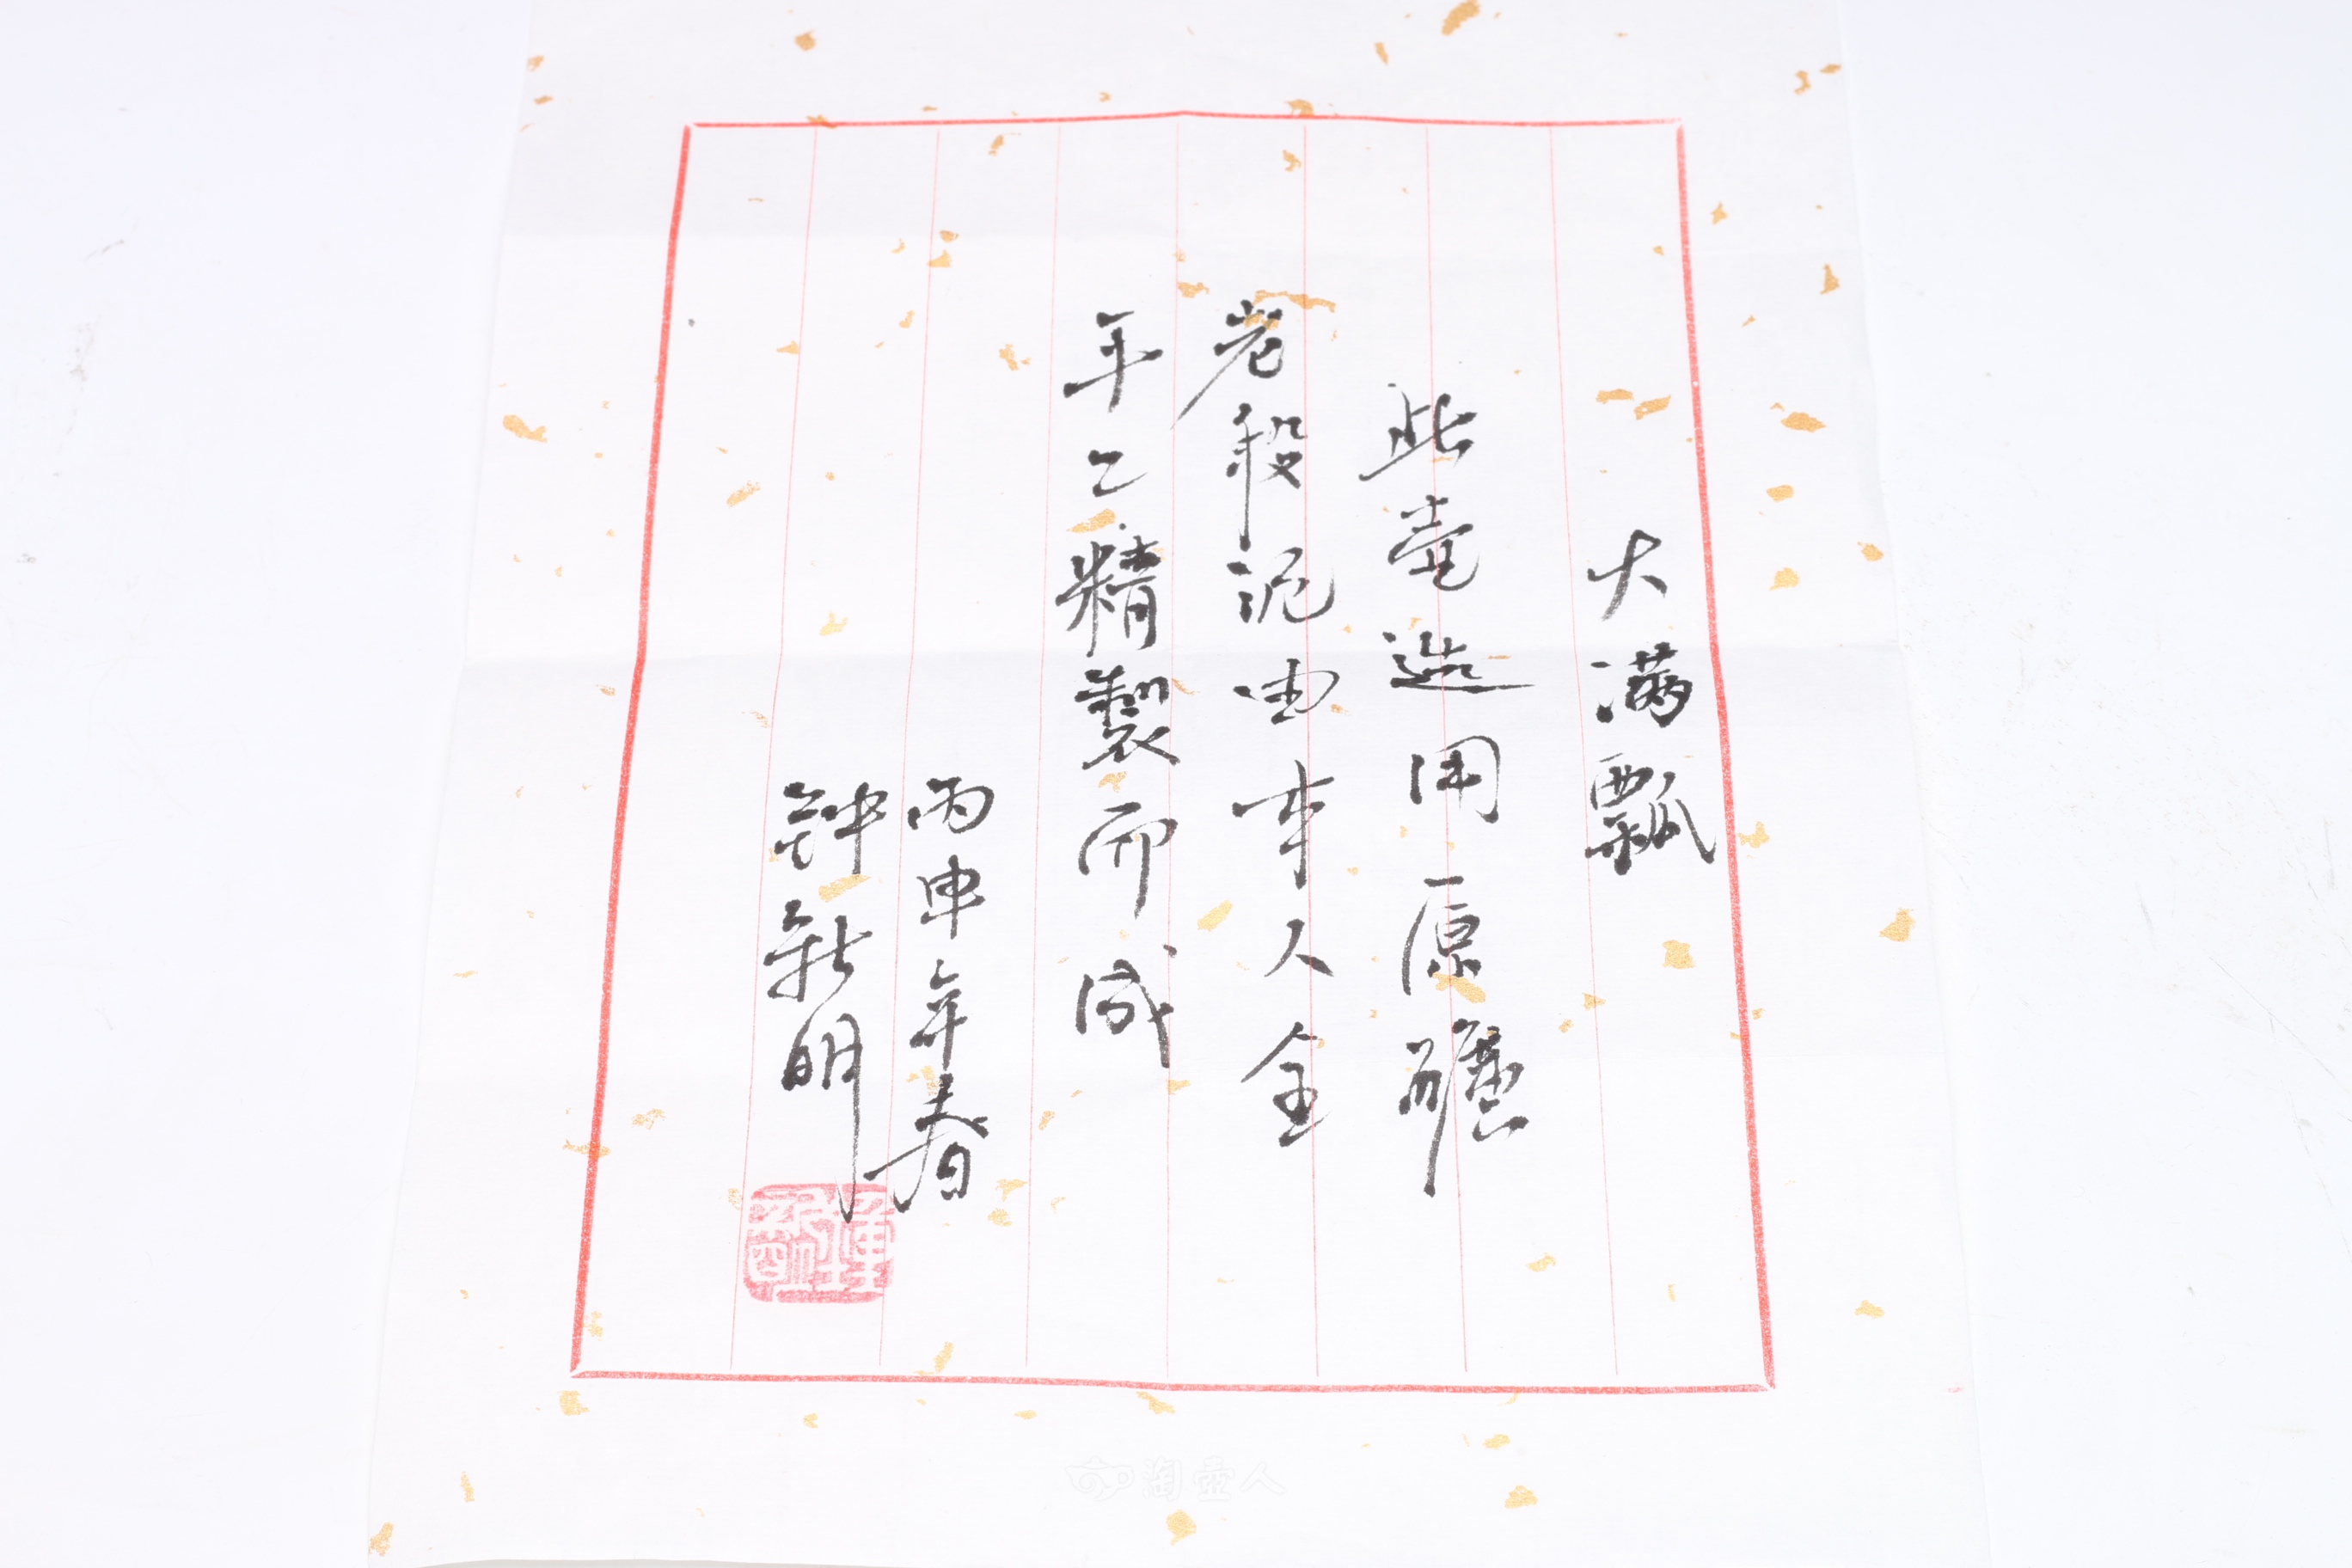 大满瓢
此壺选用原礦
老段泥由本人全
手工精製而成
丙申年春
钟新明
淘壺人